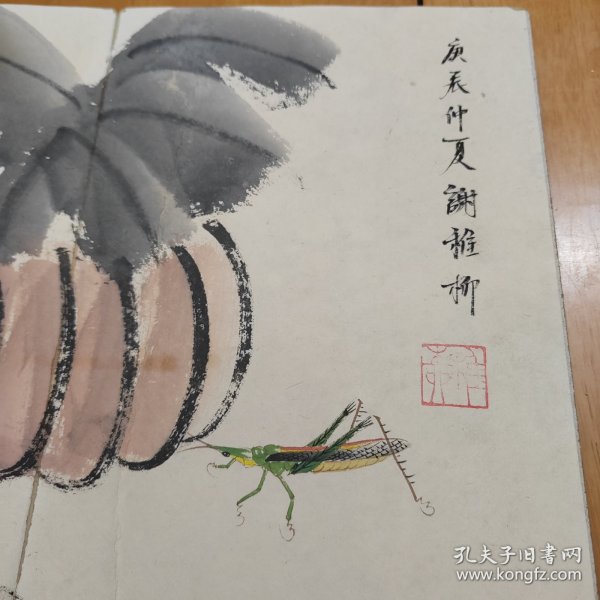 庚辰仲夏謝稚柳
孔夫子旧书网
www.kongfz.com